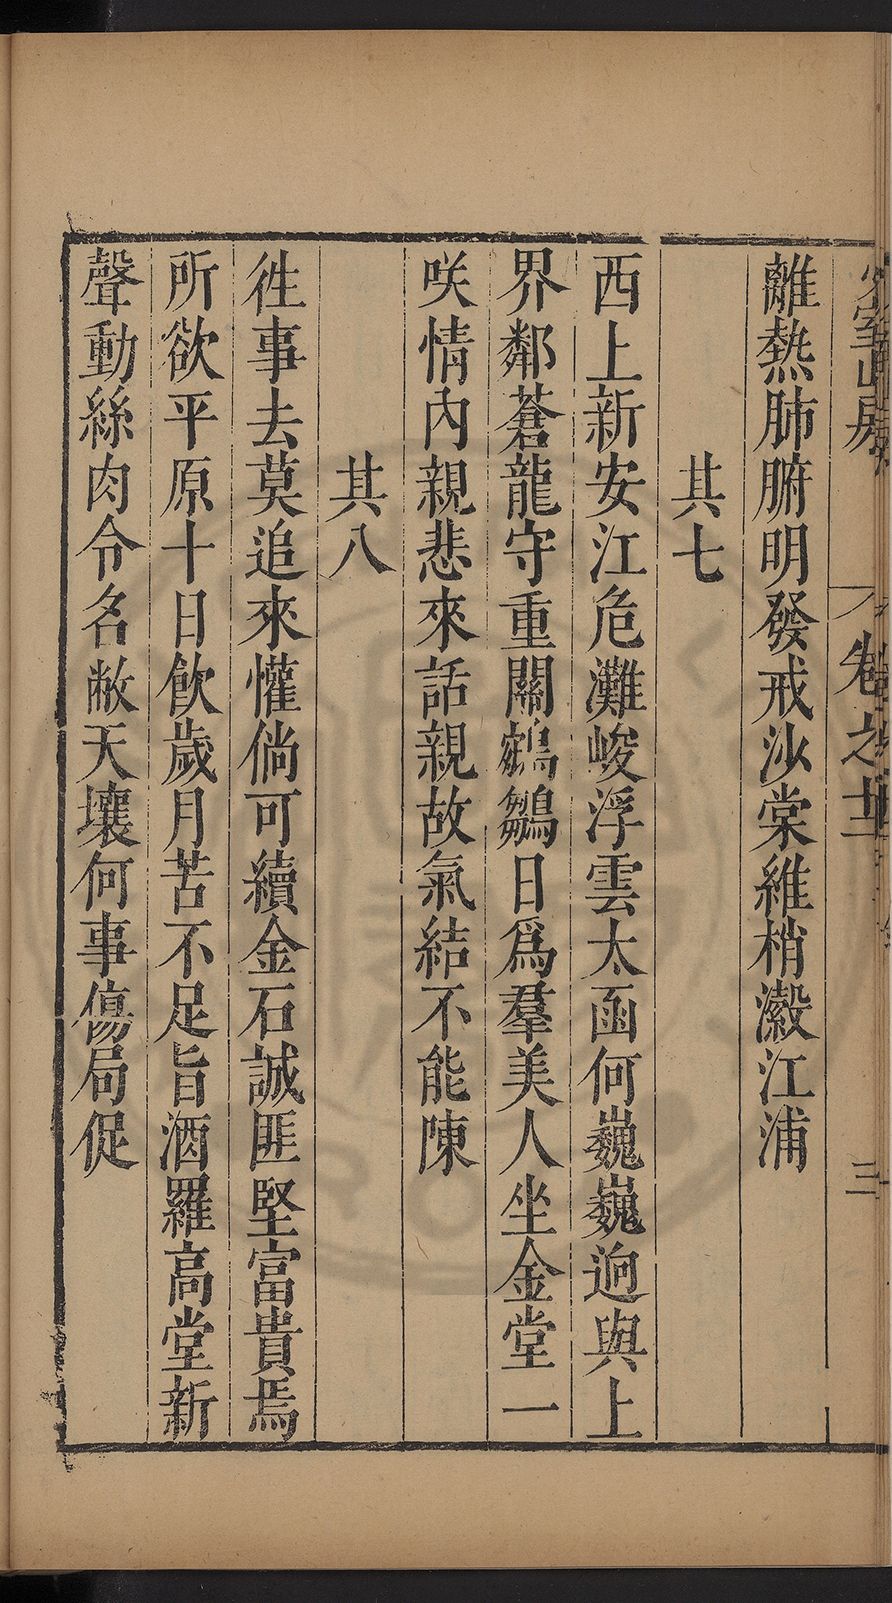 少室山房
卷之十二
三
離熱肺腑明發戒沙棠維梢瀫江浦
其七
西上新安江危灘峻浮雲太函何巍巍逈與上
界鄰蒼龍守重關鵷鶵日爲羣美人坐金堂一
咲情內親悲來話親故氣結不能陳
其八
徃事去莫追來懽倘可續金石誠匪堅富貴焉
所欲平原十日飲歲月苦不足旨酒羅高堂新
聲動絲肉令名敝天壤何事傷局促